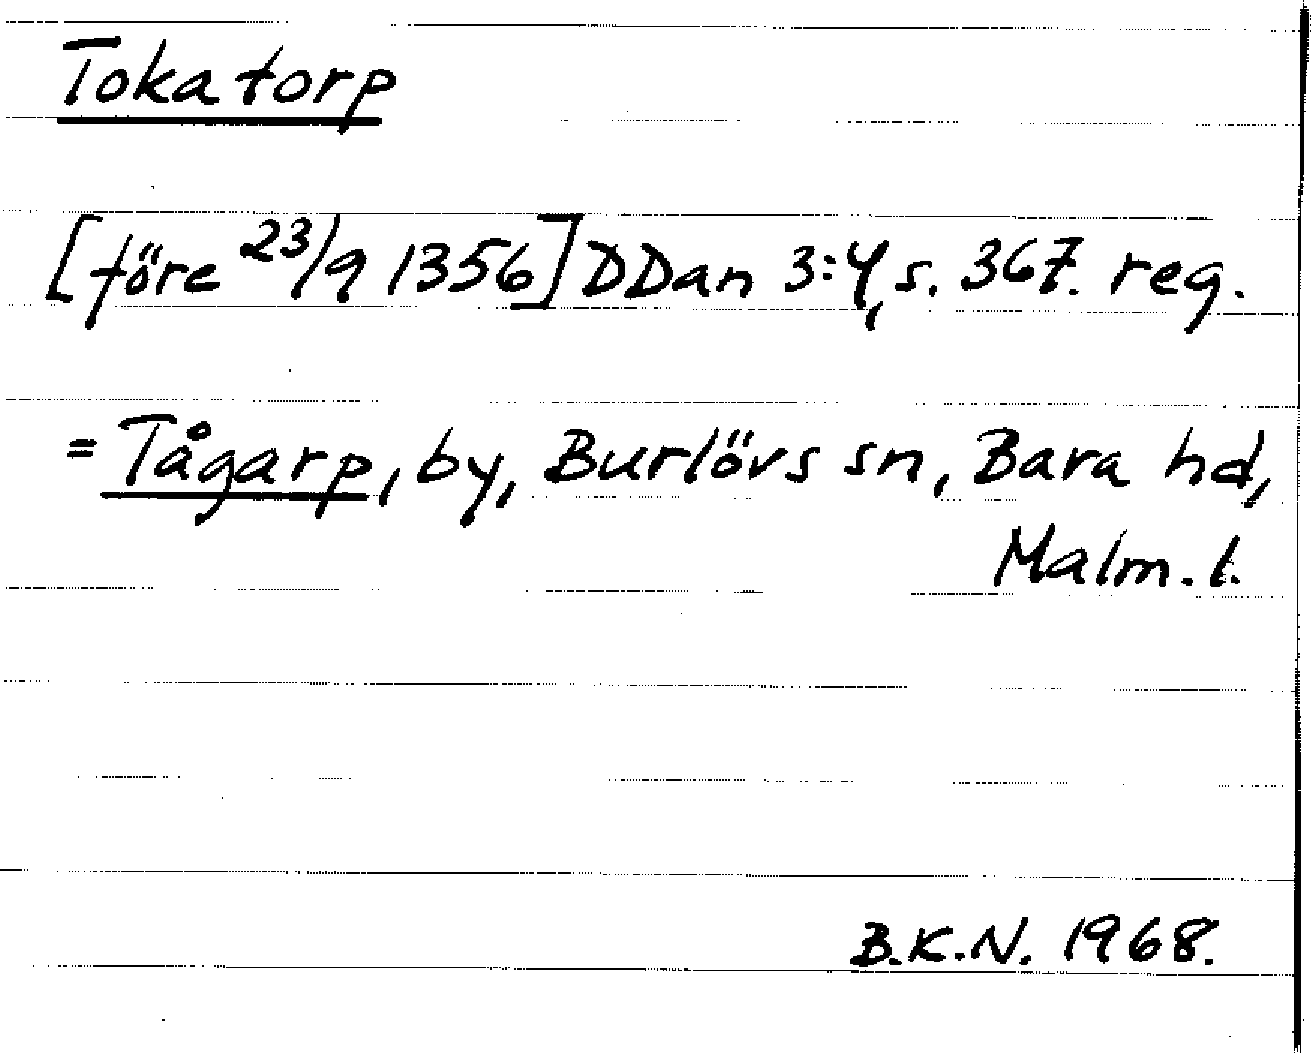 Tokatorp
[före 23/9 1356] DDan 3:4, s. 367. reg.
= Tågarp, by, Burlövs sn, Bara hd,
Malm. l.
B.K.N. 1968.